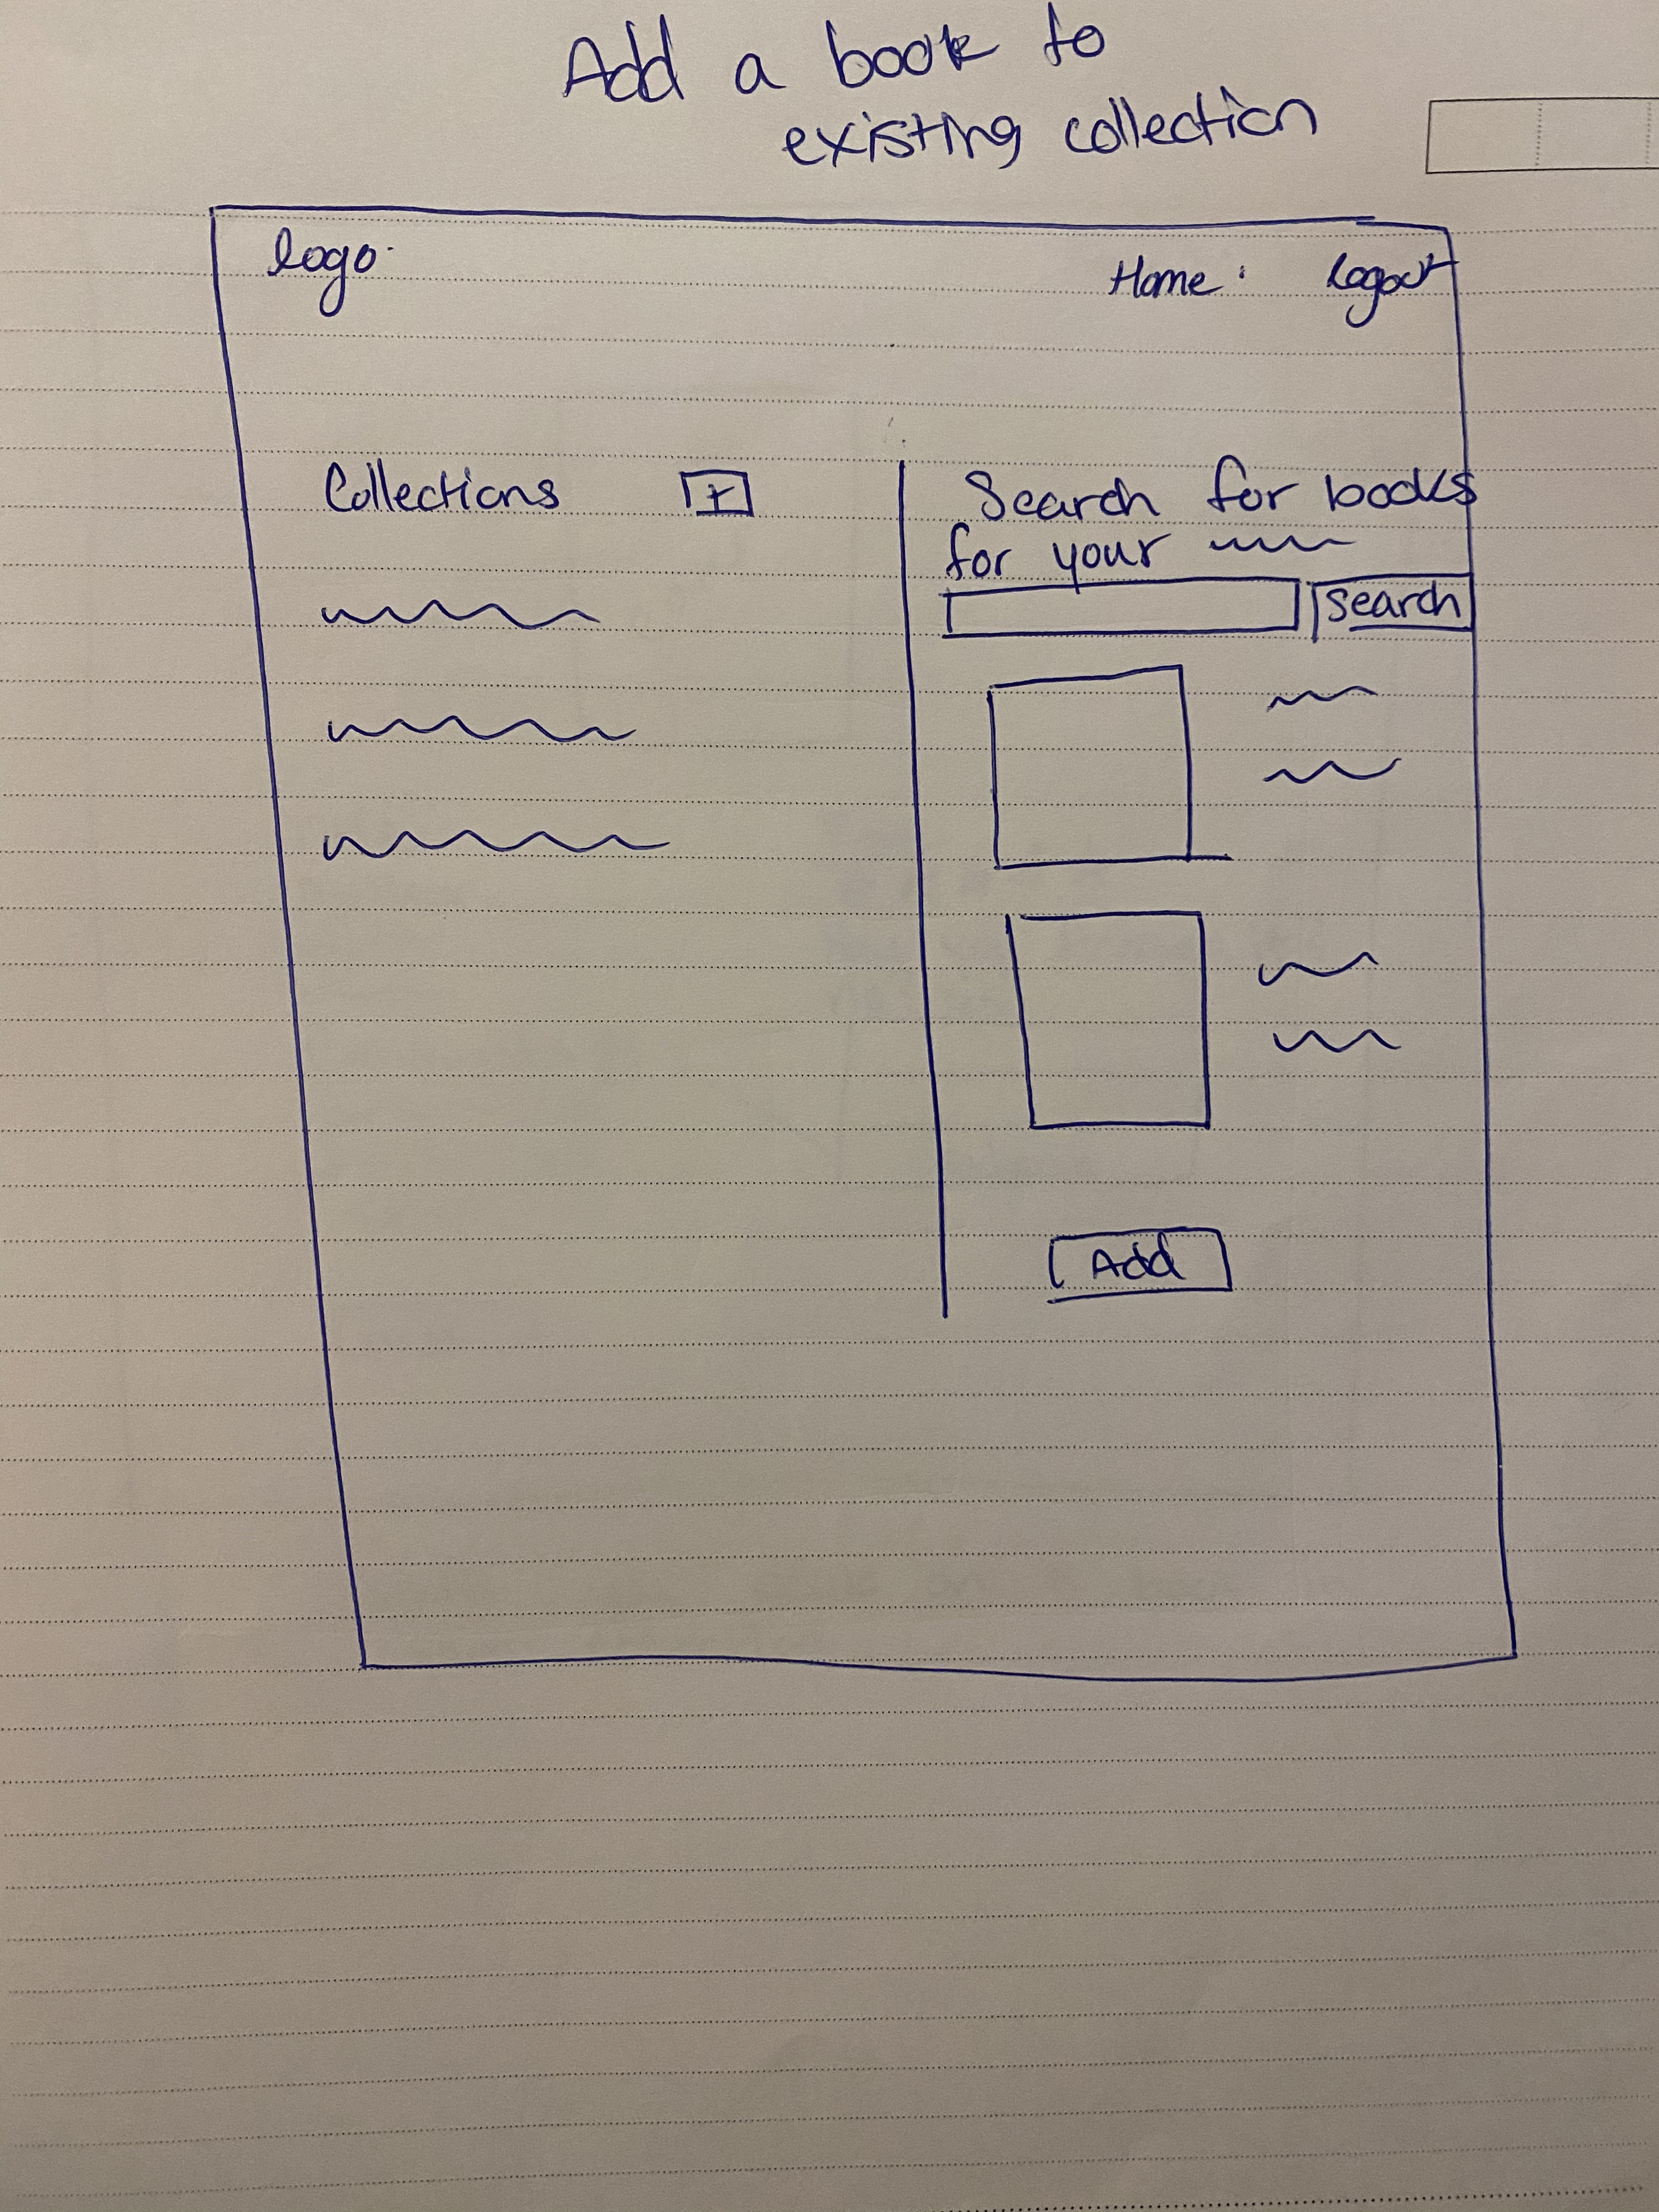 Add a book to
existing collection
logo
Home
logout
Collections
+
Search for books
for your
Search
Add